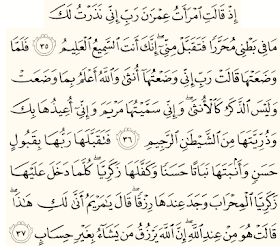 إِذْ قَالَتِ ٱمْرَأَتُ عِمْرَٰنَ رَبِّ إِنِّى نَذَرْتُ لَكَ
مَا فِى بَطْنِى مُحَرَّرًا فَتَقَبَّلْ مِنِّىٓ ۖ إِنَّكَ أَنتَ ٱلسَّمِيعُ ٱلْعَلِيمُ ٣٥ فَلَمَّا
وَضَعَتْهَا قَالَتْ رَبِّ إِنِّى وَضَعْتُهَآ أُنثَىٰ وَٱللَّهُ أَعْلَمُ بِمَا وَضَعَتْ
وَلَيْسَ ٱلذَّكَرُ كَٱلْأُنثَىٰ ۖ وَإِنِّى سَمَّيْتُهَا مَرْيَمَ وَإِنِّىٓ أُعِيذُهَا بِكَ
وَذُرِّيَّتَهَا مِنَ ٱلشَّيْطَٰنِ ٱلرَّجِيمِ ٣٦ فَتَقَبَّلَهَا رَبُّهَا بِقَبُولٍ
حَسَنٍ وَأَنۢبَتَهَا نَبَاتًا حَسَنًا وَكَفَّلَهَا زَكَرِيَّا ۖ كُلَّمَا دَخَلَ عَلَيْهَا
زَكَرِيَّا ٱلْمِحْرَابَ وَجَدَ عِندَهَا رِزْقًا ۖ قَالَ يَٰمَرْيَمُ أَنَّىٰ لَكِ هَٰذَا ۖ
قَالَتْ هُوَ مِنْ عِندِ ٱللَّهِ ۖ إِنَّ ٱللَّهَ يَرْزُقُ مَن يَشَآءُ بِغَيْرِ حِسَابٍ ٣٧